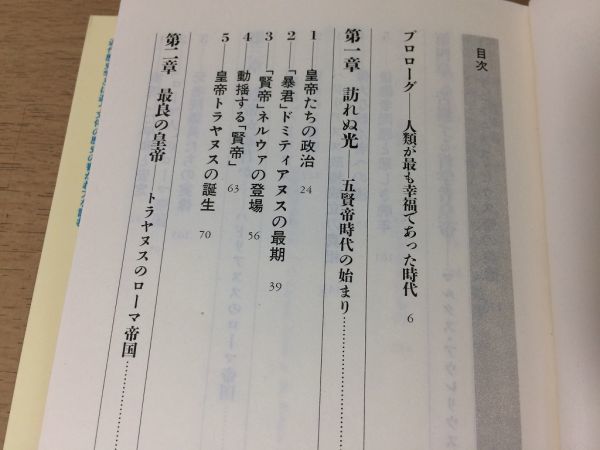 目次
プロローグ——人類が最も幸福であった時代 6
第一章 訪れぬ光 五賢帝時代の始まり……………
1 皇帝たちの政治 24
2 「暴君」ドミティアヌスの最期 39
3 「賢帝」ネルウァの登場 56
4 動揺する「賢帝」 63
5 皇帝トラヤヌスの誕生 70
第二章 最良の皇帝 トラヤヌスのローマ帝国……………